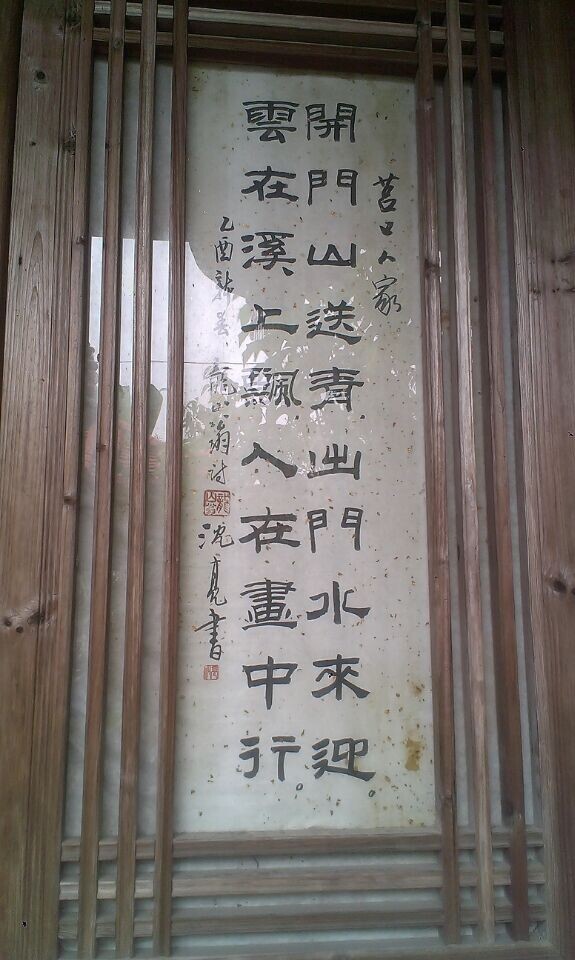 莒口人家
開門山送青出門水來迎。
雲在溪上飄人在畫中行。
乙酉新春 龍山翁詩 沈亮書